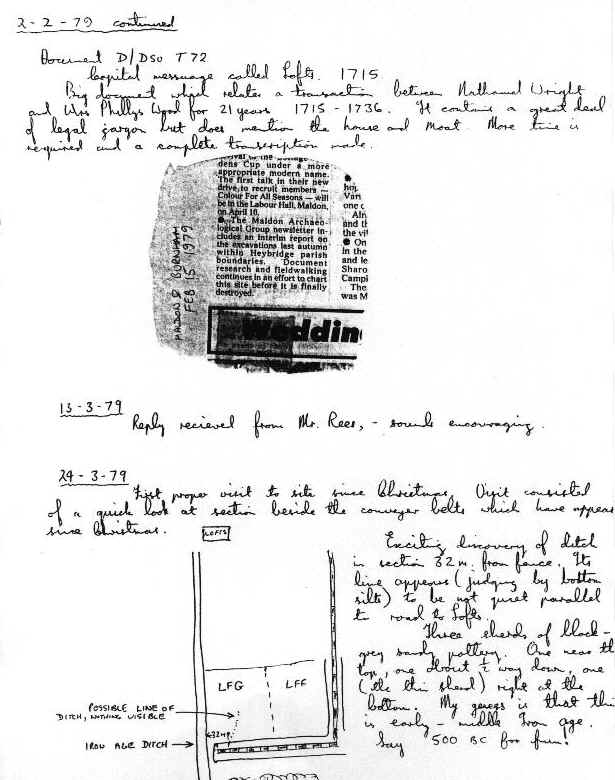 2-2-79 continued
Document D/DSu T72
Capital messuage called Lofts. 1715
Big document which relates a transaction between Nathanael Wright
and Mrs Phillys Wood for 21 years 1715-1736. It contains a great deal
of legal jargon but does mention the house and moat. More time is
required and a complete transcription made.
MALDON & BURNHAM
FEB 15 1979
dens Cup under a more
appropriate modern name.
The first talk in their new
drive, to recruit members —
Colour For All Seasons — will
be in the Labour Hall, Maldon,
on April 10.
● The Maldon Archaeo-
logical Group newsletter in-
cludes an interim report on
the excavations last autumn
within Heybridge parish
boundaries. Document
research and fieldwalking
continues in an effort to chart
this site before it is finally
destroyed.
●
hoj
Van
one c
Aln
and th
the vil
● On
in the
and le
Sharo
Campl
The
was M
Weddin
13-3-79
Reply recieved from Mr. Rees, - sounds encouraging.
24-3-79
First proper visit to site since Christmas. Visit consisted
of a quick look at section beside the conveyer belts which have appear
since Christmas.
LOFTS
Exciting discovery of ditch
in section 32m. from fence. Its
line appears (judging by bottom
silts) to be not quiet parallel
to road to Lofts.
Three sherds of black-
grey sandy pottery. One near th
top, one about ½ way down, one
(the thin sherd) right at the
bottom. My guess is that thi
is early - middle Iron age.
Say 500 BC for fun!
LFG
LFF
POSSIBLE LINE OF
DITCH, NOTHING VISIBLE
32m
IRON AGE DITCH